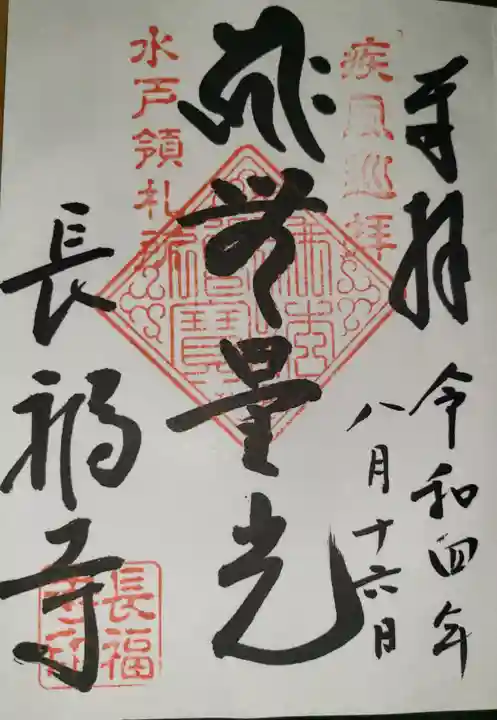 奉拝
令和四年
八月十六日
疾風巡拝
無量光
水戸領札所
長福寺
佛法僧寶
長福
寺印